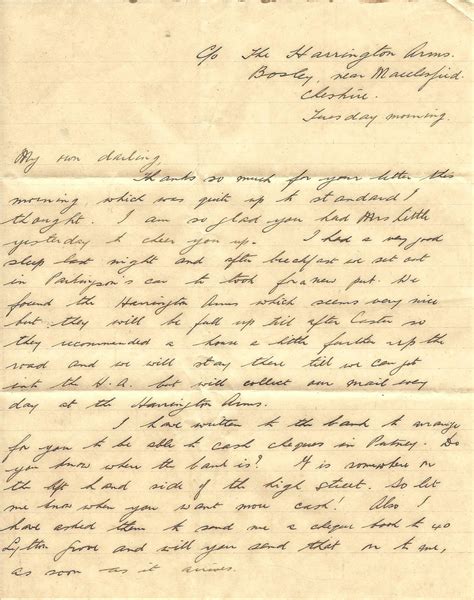 C/o The Harrington Arms.
Bosley, near Macclesfield
Cheshire.
Tuesday morning.
My own darling,
Thanks so much for your letter this
morning, which was quite up to standard I
thought. I am so glad you had Mrs Little
yesterday to cheer you up. I had a very good
sleep last night and after breakfast we set out
in Parkinson's car to look for a new pub. We
found the Harrington Arms which seems very nice
but they will be full up till after Easter so
they recommended a house a little further up the
road and we will stay there till we can get
into the H.A. but will collect our mail every
day at the Harrington Arms.
I have written to the bank to arrange
for you to be able to cash cheques in Putney. Do
you know where the bank is? It is somewhere on
the left hand side of the high street. So let
me know when you want more cash! Also I
have asked them to send me a cheque book to 40
Lytton Grove and will you send that on to me,
as soon as it arrives.